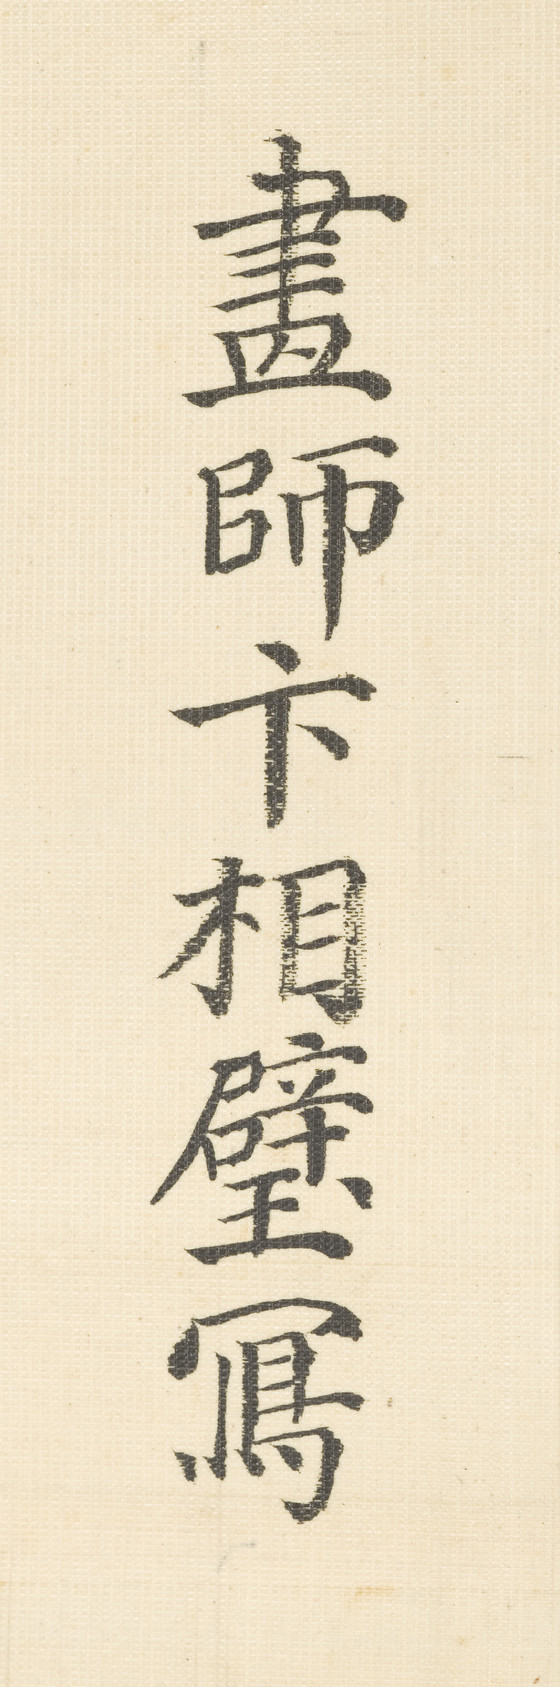 畫師卞相璧寫